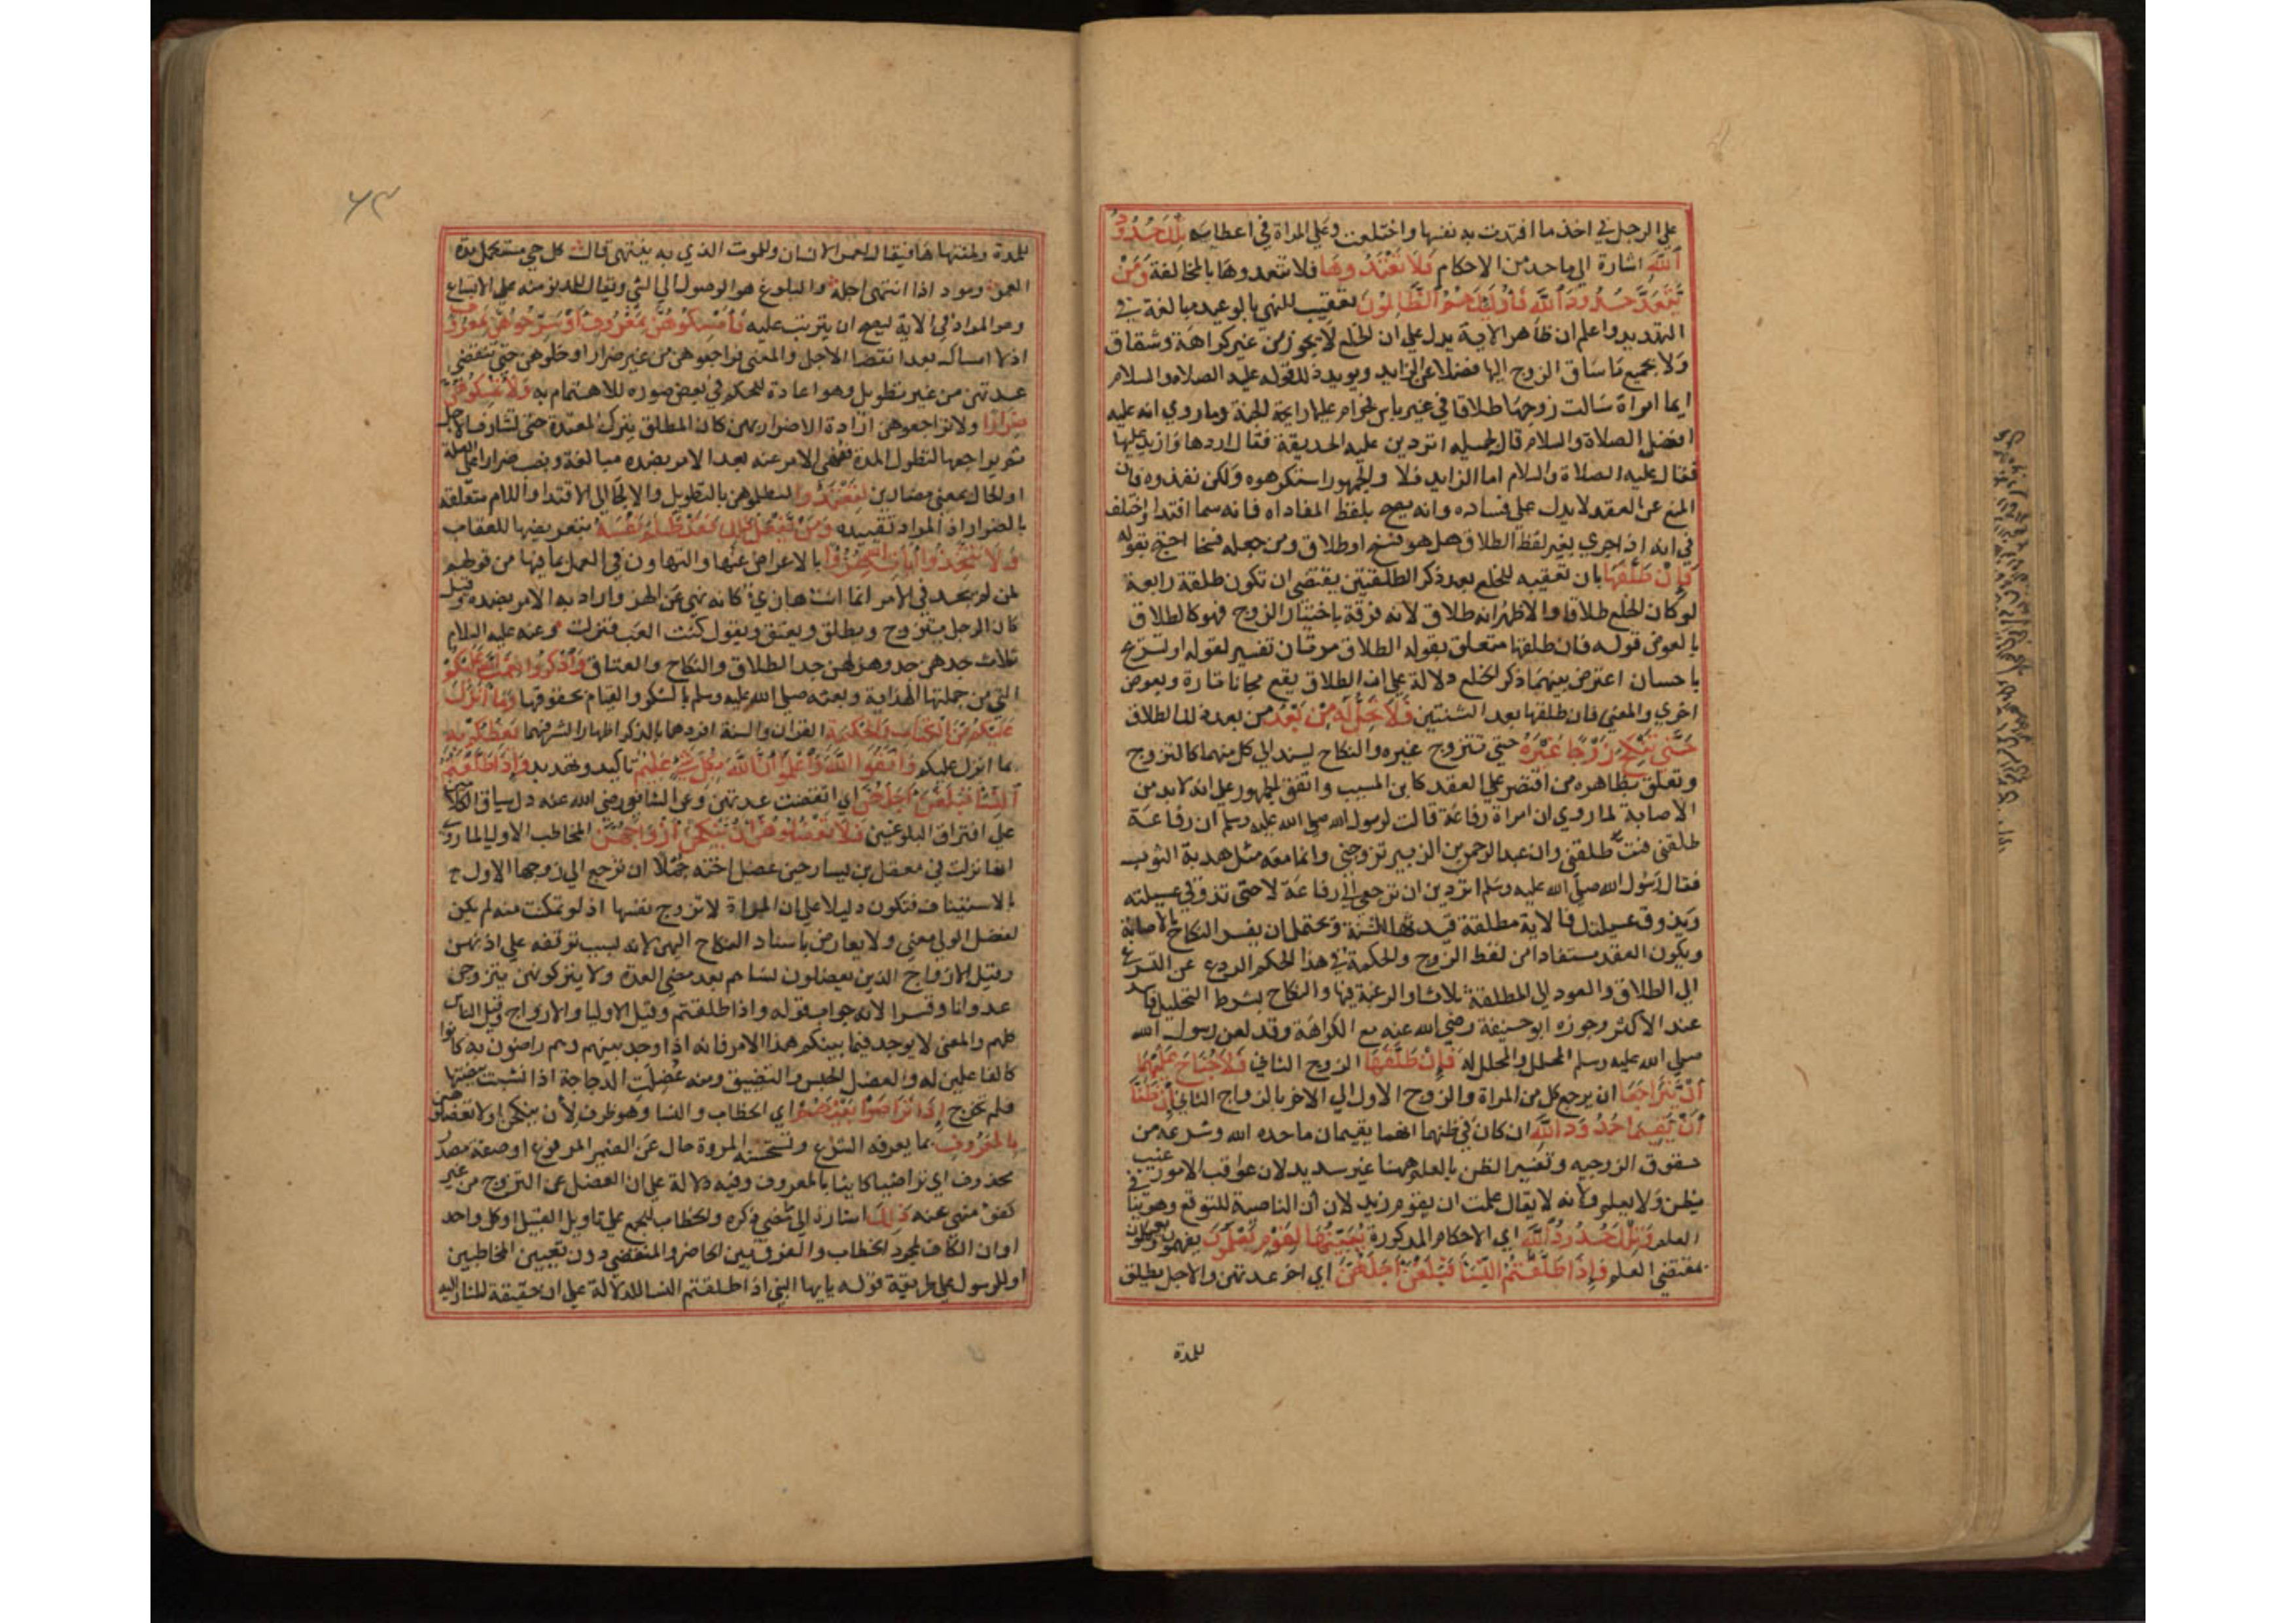 علي الرجل في اخذ ما افتدت به نفسها واختلعت وعلي المراة في اعطايه تِلْكَ حُدُودُ
ٱللَّهِ اشارة الي ما حد من الاحكام فَلَا تَعْتَدُوهَا فلا تتعدوها بالمخالفة وَمَنْ
يَتَعَدَّ حُدُودَ ٱللَّهِ فَأُولَٰئِكَ هُمُ ٱلظَّالِمُونَ تعقيب للنهي بالوعيد مبالغة في
التهديد واعلم ان ظاهر الاية يدل علي ان الخلع لا يجوز من غير كراهة وشقاق
ولا بجميع ما ساق الزوج اليها فضلا عن الزايد ويويد ذلك قوله عليه الصلاه والسلام
ايما امراة سالت زوجها طلاقا في غير باس فحرام عليها رايحة الجنة وما روي انه عليه
افضل الصلاة والسلام قال لجميله اتردين عليه الحديقة فقال اردها وازيد عليها
فقال عليه الصلاة والسلام اما الزايد فلا والجمهور استكرهوه ولكن نفذوه فان
المنع عن العقد لا يدل علي فساده وانه يصح بلفظ المفاداه فانه سما افتدا واختلف
في انه اذا جري بغير لفظ الطلاق هل هو فسخ او طلاق ومن جعله فسخا احتج بقوله
فَإِنْ طَلَّقَهَا بان تعقيبه للخلع بعد ذكر الطلقتين يقتضي ان تكون طلقة رابعة
لو كان الخلع طلاقا والاظهر انه طلاق لانه فرقة باختيار الزوج فهو كالطلاق
بالعوض قوله فان طلقها متعلق بقوله الطلاق مرتان تفسير لقوله او تسريح
باحسان اعترض بينهما ذكر الخلع دلالة علي ان الطلاق يقع مجانا تارة وبعوض
اخري والمعني فان طلقها بعد الثنتين فَلَا تَحِلُّ لَهُ مِنْ بَعْدُ من بعد ذلك الطلاق
حَتَّى تَنْكِحَ زَوْجًا غَيْرَهُ حتي تتزوج غيره والنكاح يسند الي كل منهما كالتزوج
وتعلق بظاهره من اقتصر علي العقد كابن المسيب واتفق الجمهور علي انه لا بد من
الاصابة لما روي ان امراة رفاعة قالت لرسول الله صلي الله عليه وسلم ان رفاعة
طلقني فبت طلقتي وان عبد الرحمن بن الزبير تزوجني وانما معه مثل هدبة الثوب
فقال رسول الله صلي الله عليه وسلم اتردين ان ترجعي الي رفاعة لا حتي تذوقي عسيلته
ويذوق عسيلتك فالاية مطلقة قيدتها السنة ويحتمل ان يفسر النكاح بالاصابة
ويكون العقد مستفادا من لفظ الزوج والحكمة في هذا الحكم الردع عن التسرع
الي الطلاق والعود الي المطلقة ثلاثا والرغبة فيها والنكاح بشرط التحليل فاسد
عند الاكثر وجوزه ابو حنيفة رضي الله عنه مع الكراهة وقد لعن رسول الله
صلي الله عليه وسلم المحلل والمحلل له فَإِنْ طَلَّقَهَا الزوج الثاني فَلَا جُنَاحَ عَلَيْهِمَا
أَنْ يَتَرَاجَعَا ان يرجع كل من المراة والزوج الاول الي الاخر بالزواج الثاني إِنْ ظَنَّا
أَنْ يُقِيمَا حُدُودَ اللَّهِ ان كان في ظنهما انهما يقيمان ما حده الله وشرعه من
حقوق الزوجيه وتفسير الظن بالعلم ههنا غير سديد لان عواقب الامور غيب
يظن ولا يعلم ولانه لا يقال علمت ان يقوم زيد لان أن الناصبة للتوقع وهو ينافي
العلم وَتِلْكَ حُدُودُ اللَّهِ اي الاحكام المذكورة يُبَيِّنُهَا لِقَوْمٍ يَعْلَمُونَ يفهمون ويعملون
بمقتضي العلم وَإِذَا طَلَّقْتُمُ النِّسَاءَ فَبَلَغْنَ أَجَلَهُنَّ اي اخر عدتهن والاجل يطلق
للمدة
للمدة ولمنتهاها فيقال لعمر الانسان وللموت الذي به ينتهي قال كل حي مستكمل مدة
العمر ومود اذا انتهي اجله والبلوغ هو الوصول الي الشي وقد يقال للدنو منه علي الاتساع
وهو المراد في الاية ليصح ان يترتب عليه فَأَمْسِكُوهُنَّ بِمَعْرُوفٍ أَوْ سَرِّحُوهُنَّ بِمَعْرُوفٍ
اذ لا امساك بعد انقضا الاجل والمعني فراجعوهن من غير ضرار او خلوهن حتي تنقضي
عدتهن من غير تطويل وهو اعادة للحكم في بعض صوره للاهتمام به وَلَا تُمْسِكُوهُنَّ
ضِرَارًا ولا تراجعوهن ارادة الاضرار بهن كان المطلق يترك المعتدة حتي تشارف الاجل
ثم يراجعها لتطول المدة فنهي عنه بعد الامر بضده مبالغة ونصب ضرارا علي العلة
او الحال بمعني مضارين لِتَعْتَدُوا لتظلموهن بالتطويل والالجا الي الافتدا واللام متعلقه
بالضرار اذ المراد تقييده وَمَنْ يَفْعَلْ ذَلِكَ فَقَدْ ظَلَمَ نَفْسَهُ بتعريضها للعقاب
وَلَا تَتَّخِذُوا آيَاتِ اللَّهِ هُزُوًا بالاعراض عنها والتهاون في العمل بما فيها من قولهم
لمن لم يجد في الامر انما انت هازي كانه نهي عن الهزو واراد به الامر بضده وقيل
كان الرجل يتزوج ويطلق ويعتق ويقول كنت العب فنزلت وعنه عليه السلام
ثلاث جدهن جد وهزلهن جد الطلاق والنكاح والعتاق وَاذْكُرُوا نِعْمَتَ اللَّهِ عَلَيْكُمْ
التي من جملتها الهداية وبعثه صلي الله عليه وسلم بالشكر والقيام بحقوقها وَمَا أَنْزَلَ
عَلَيْكُمْ مِنَ الْكِتَابِ وَالْحِكْمَةِ القران والسنة افردهما بالذكر اظهارا لشرفهما يَعِظُكُمْ بِهِ
بما انزل عليكم وَاتَّقُوا اللَّهَ وَاعْلَمُوا أَنَّ اللَّهَ بِكُلِّ شَيْءٍ عَلِيمٌ تاكيد وتهديد وَإِذَا طَلَّقْتُمُ
النِّسَاءَ فَبَلَغْنَ أَجَلَهُنَّ اي انقضت عدتهن وعن الشافعي رضي الله عنه دل سياق الكلامين
علي افتراق البلوغين فَلَا تَعْضُلُوهُنَّ أَنْ يَنْكِحْنَ أَزْوَاجَهُنَّ المخاطب الاوليا لما روي
انها نزلت في معقل بن يسار حين عضل اخته جملا ان ترجع الي زوجها الاول
بالاستيناف فتكون دليلا علي ان المراة لا تزوج نفسها اذ لو تمكنت منه لم يكن
لعضل الولي معني ولا يعارض باسناد النكاح اليهن لانه بسبب توقفه علي اذنهن
وقيل الازواج الذين يعضلون نساهم بعد مضي العدة ولا يتركونهن يتزوجن
عدوانا وقسرا لانه جواب قوله واذا طلقتم وقيل الاوليا والازواج وقيل الناس
كلهم والمعني لا يوجد فيما بينكم هذا الامر فانه اذا وجد بينهم وهم راضون به كانوا
كالفاعلين له والعضل الحبس والتضييق ومنه عُضلت الدجاجة اذا نشبت بيضتها
فلم تخرج إِذَا تَرَاضَوْا بَيْنَهُمْ اي الخطاب والنسا وهو ظرف لأن ينكحن او لا تعضلوهن
بِالْمَعْرُوفِ بما يعرفه الشرع وتستحسنه المروة حال عن الضمير المرفوع او صفة مصدر
محذوف اي تراضيا كاينا بالمعروف وفيه دلالة علي ان العضل عن التزوج من غير
كفو غير منهي عنه ذَلِكَ اشارة الي ما مضي ذكره والخطاب للجمع علي تاويل القبيل او كل واحد
او ان الكاف لمجرد الخطاب والفرق بين الحاضر والمنقضي دون تعيين المخاطبين
او للرسول علي طريقة قوله يايها النبي اذا طلقتم النسا للدلالة علي ان حقيقة المشار اليه